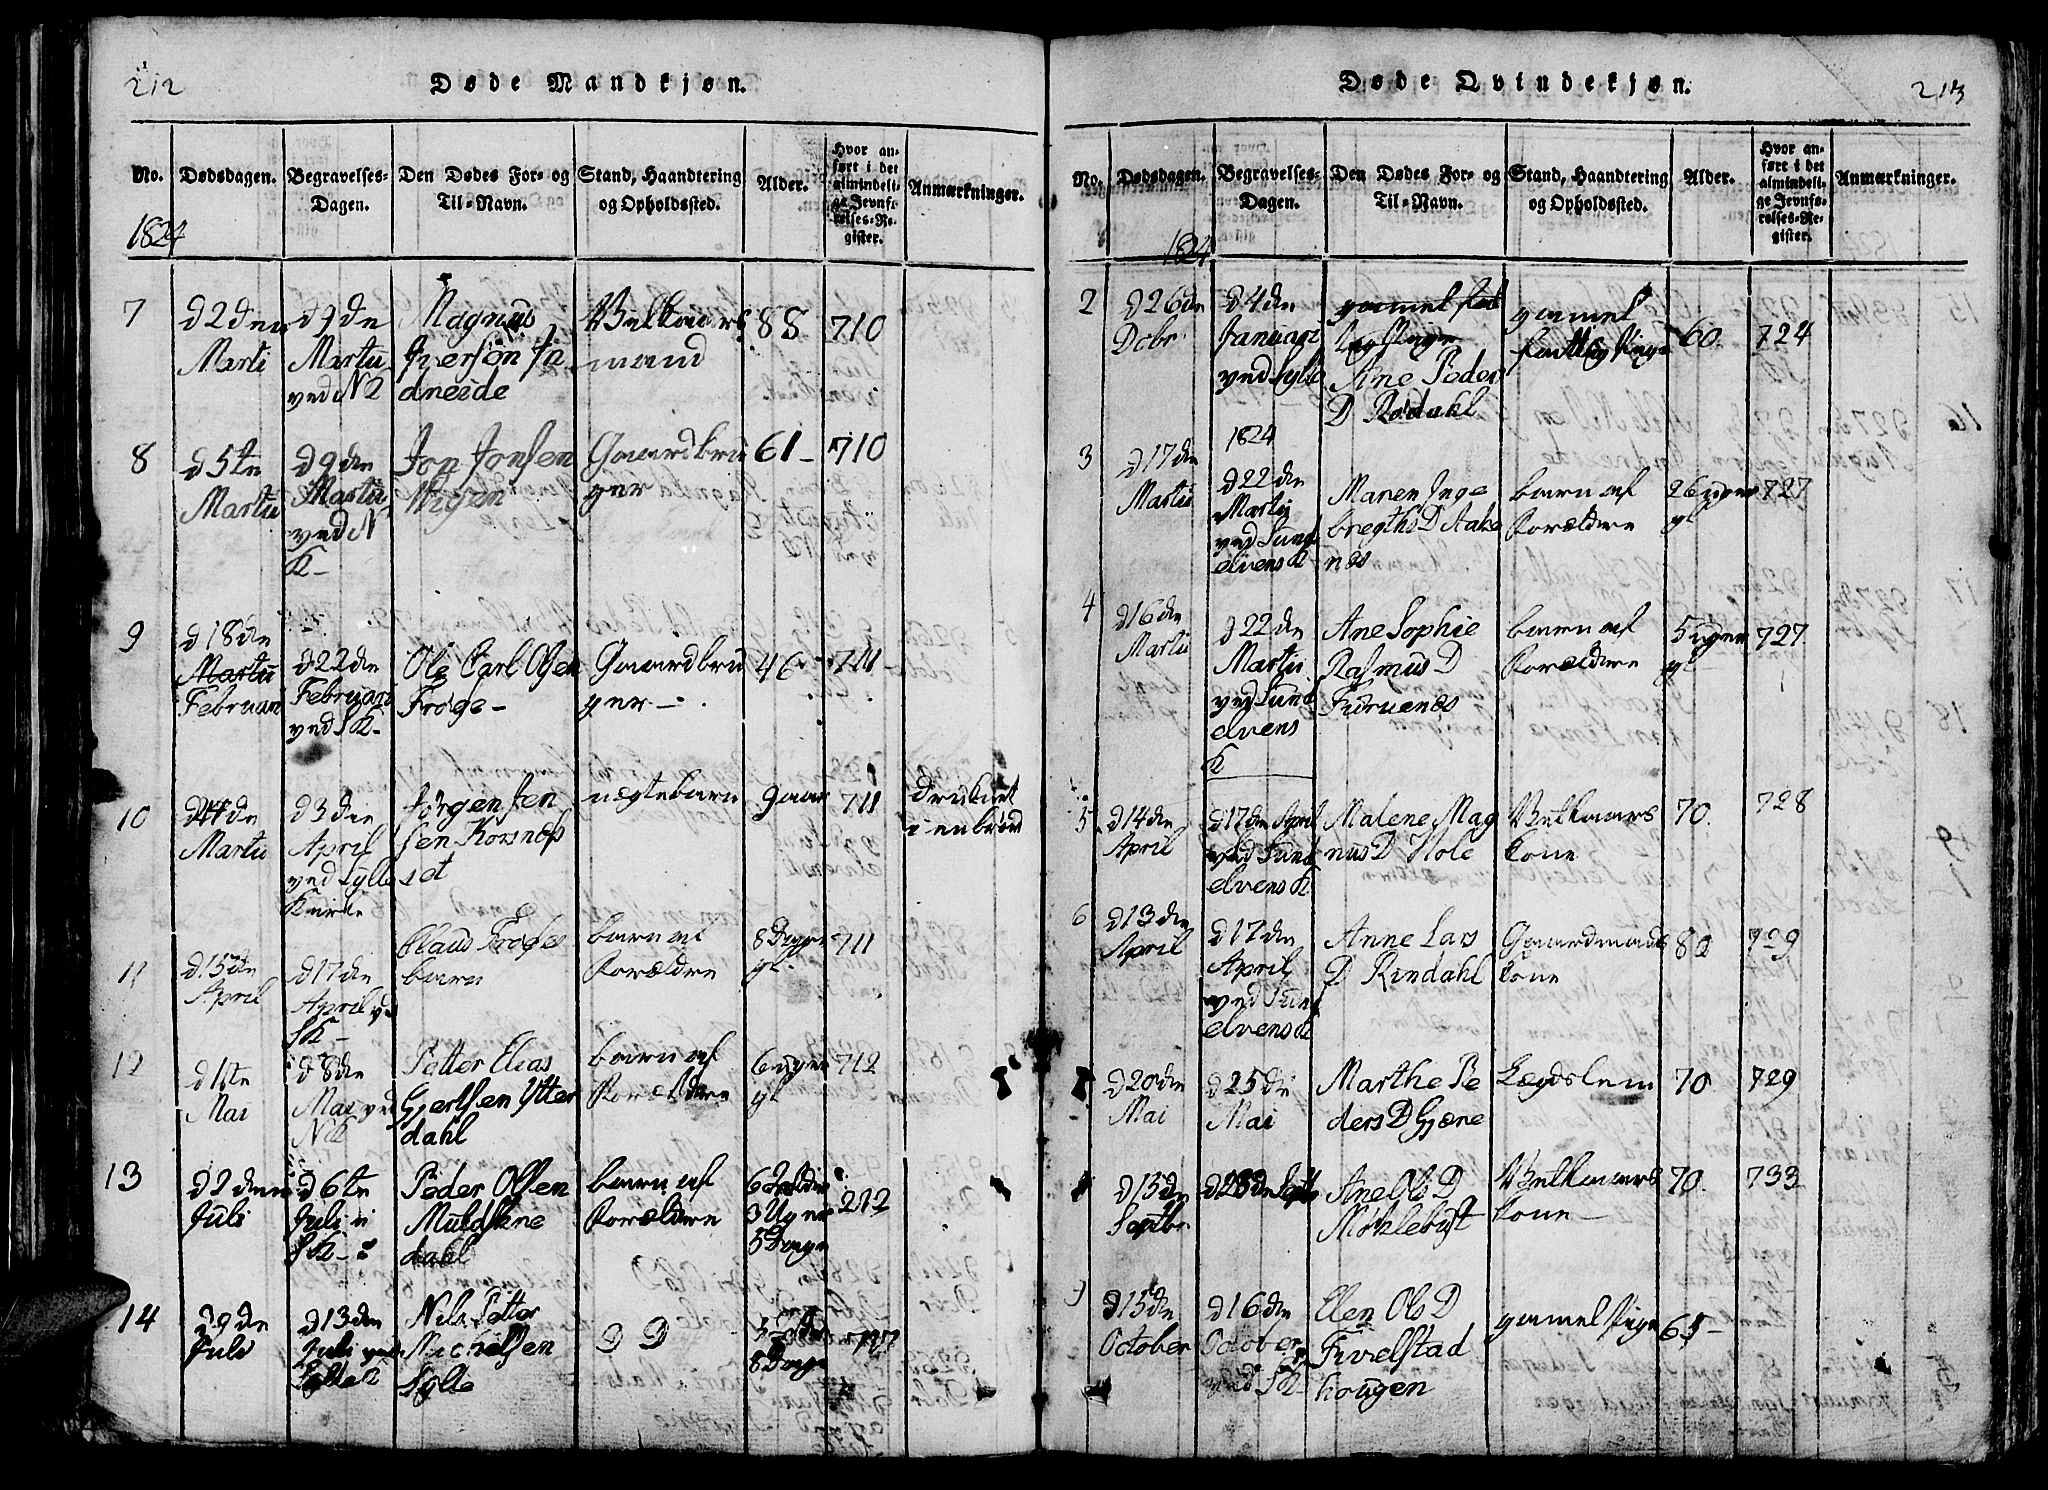 212
Døde Mandkjøn.
No.
Dødsdagen.
Begravelses-
Dagen.
Den Dødes For- og
Til-Navn.
Stand, Haandtering
og Opholdssted.
Alder.
Hvor an-
ført i det
almindeli-
ge Jevnfø-
relses-Re-
gister.
Anmærkninger.
1824
7
d 2den
Marti
d 9de
Martii
ved NK
Magnus
Iversøn In
dreeide
Vilkaars
mand
88
710
8
d 5te
Martii
d 9de
Martii
ved N
K-
Jon Jonsen
Stigen
Gaardbru
ger
61-
710
9
d 18de
Martii
Februari
d 22de
Februari
ved SK-
Ole Carl Olsen
Frøge-
Gaardbru
ger-
46-
711-
10
d 24de
Martii
d 3die
April
ved Sylte
Kirke
Jørgen Jen
sen Korsnæs
et
uægtebarn
9 aar
711
druknet
i en brønd
11
d 15de
April
d 17de
April ved
SK-
Claus Frøges
barn
barn af
Forældre
8 Dage
gl.
711
12
d 1ste
Mai
d 8de
Mai ved
NK
Petter Elias
Gjertsen Ytter
dahl
barn af
Forældre
6 uger
gl
712
13
d 2den
Juli
d 6te
Juli ii
SK-
Peder Olsen
Muldskne
dahl
barn af
Forældre
3 Uger
5 Dage
212
14
d 9de
Juli
d 13den
Juli ved
Sylte K
Nils Petter
Michelsen
Sylte
D D
8 Dage
Døde Qvindekjøn.
213
No.
Dødsdagen.
Begravelses-
Dagen.
Den Dødes For- og
Til-Navn.
Stand, Haandtering
og Opholdssted.
Alder.
Hvor an-
ført i det
almindeli-
ge Jevnfø-
relses-Re-
gister.
Anmærkninger.
1824
2
d 26de
Dcbr.
d 4de
Januari
ved Sylte
gammel fat
tig Pige
Ane Peder
D Rødahl
gammel
fattig Pige
60.
724
3
d 17de
Martii
1824
d 22de
Martii
ved Sund
elvens K
Maren Inge
bregths D Aakr
nes
barn af
Forældre
26 uger
gl
727
4
d 16de
Martii
d 22de
Martii
ved Sund
elvens
K
Ane Sophie
Rasmus D
Furunes
barn af
Forældre
5 uger
gl
727
5
d 14de
April
d 17de April
ved Sund
elvens K
Malene Mag
nus D Hole
Vilkaars
kone
70.
728
6
d 13de
April
d 17de
April
ved Sund
elvens K
Anne Lars
D Rindahl
Gaardmands
kone
80
729
7
d 20de
Mai
d 25de
Mai
Marthe Pe
ders D Gjære
Lægdslem
70
729
d 15de
Septbr
d 18de Septb
Ane Ols D
Møklebust
Vilkaars
kone-
70.
733
9
d 15de
October
d 16de
October
ved SK
Elen Ols D
Fivelstad
hougen
gammel Pige
65-